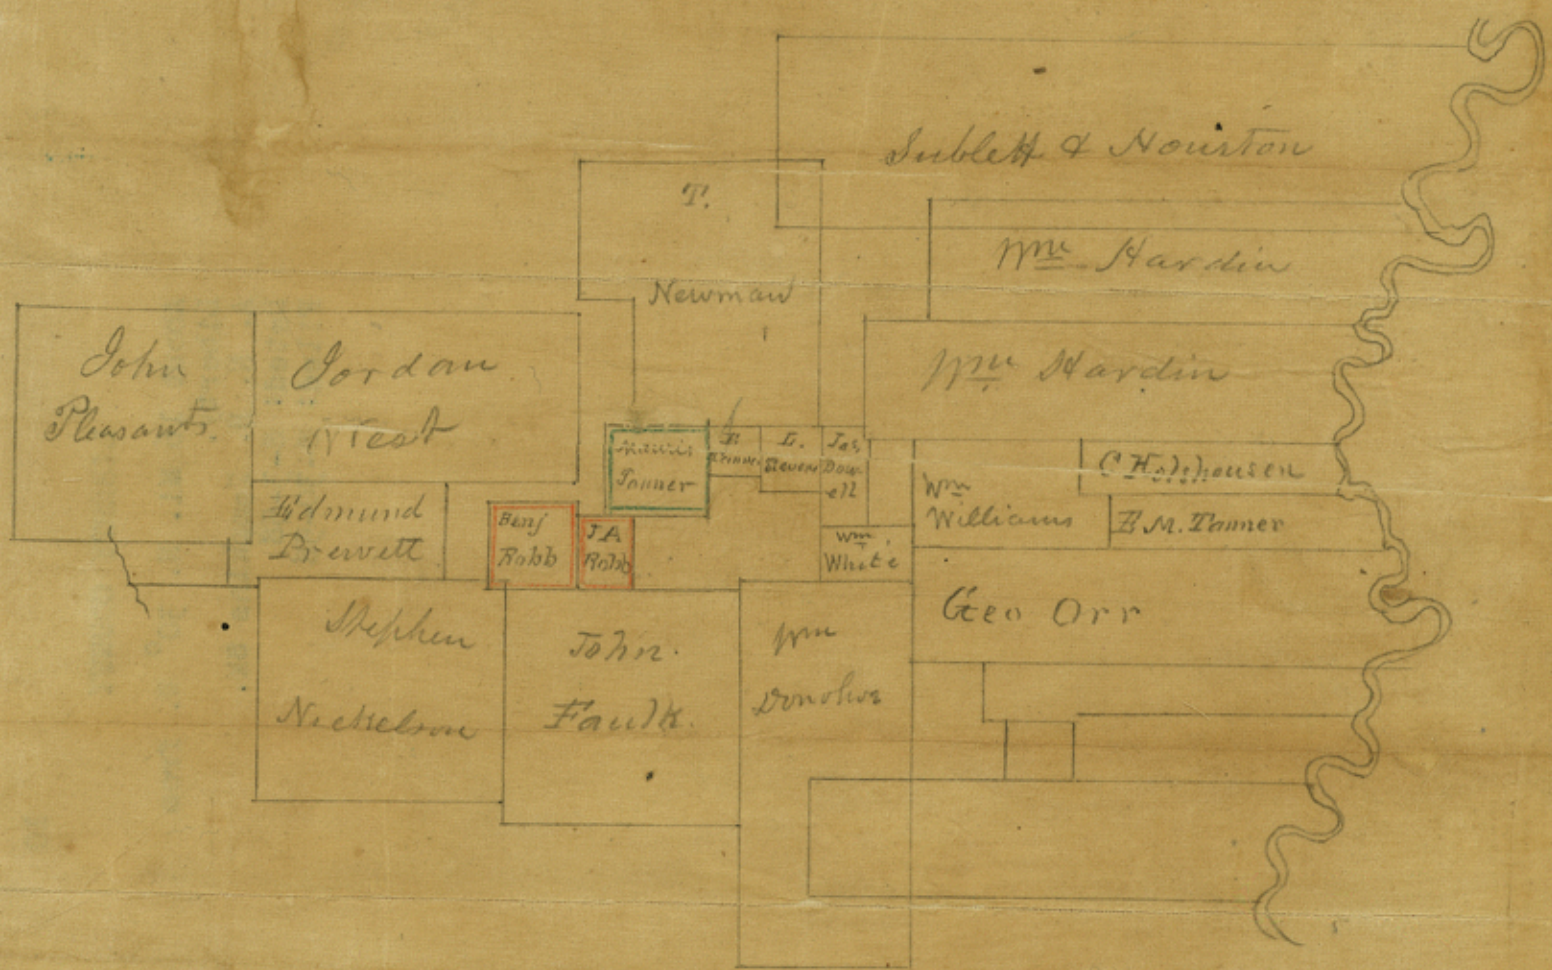 Sublett & Houston
T.
Newman
Wm Hardin
Wm Hardin
John
Pleasants
Jordan
West
Morris
Tanner
E
L.
Stevens
Jas,
Dow-
ell
C Holshausen
Wm
Williams
E M. Tanner
Edmund
Prewett
Benj
Robb
J A
Robb
Wm,
White
Geo Orr
Stephen
Nickelson
John.
Faulk.
Wm
Donohoe